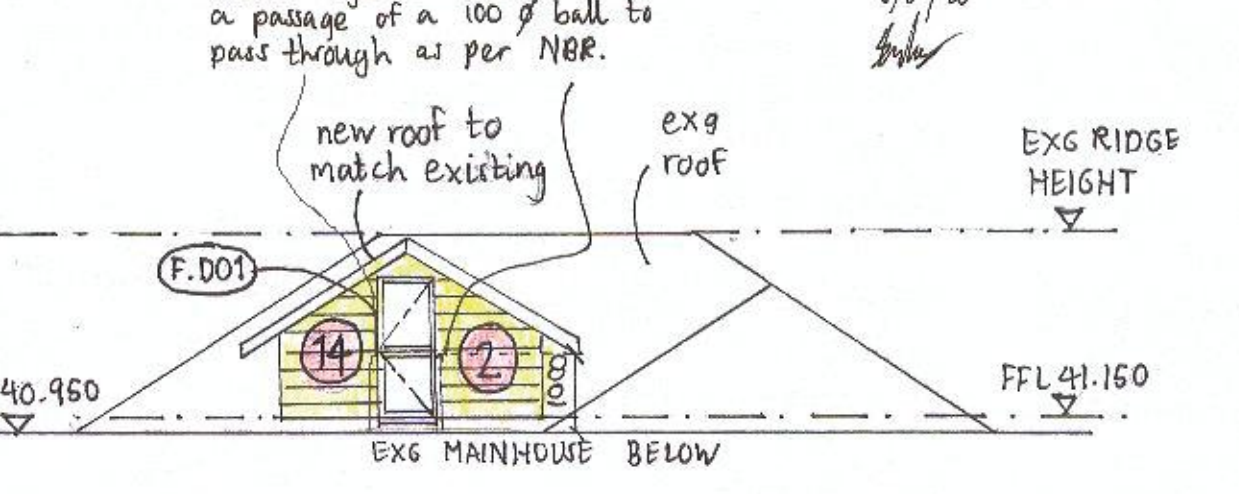 a passage of a 100 ø ball to
pass through as per NBR.
new roof to
match existing
exg
roof
EXG RIDGE
HEIGHT
F.D01
14
2
1008
40.950
FFL 41.150
EXG MAINHOUSE BELOW